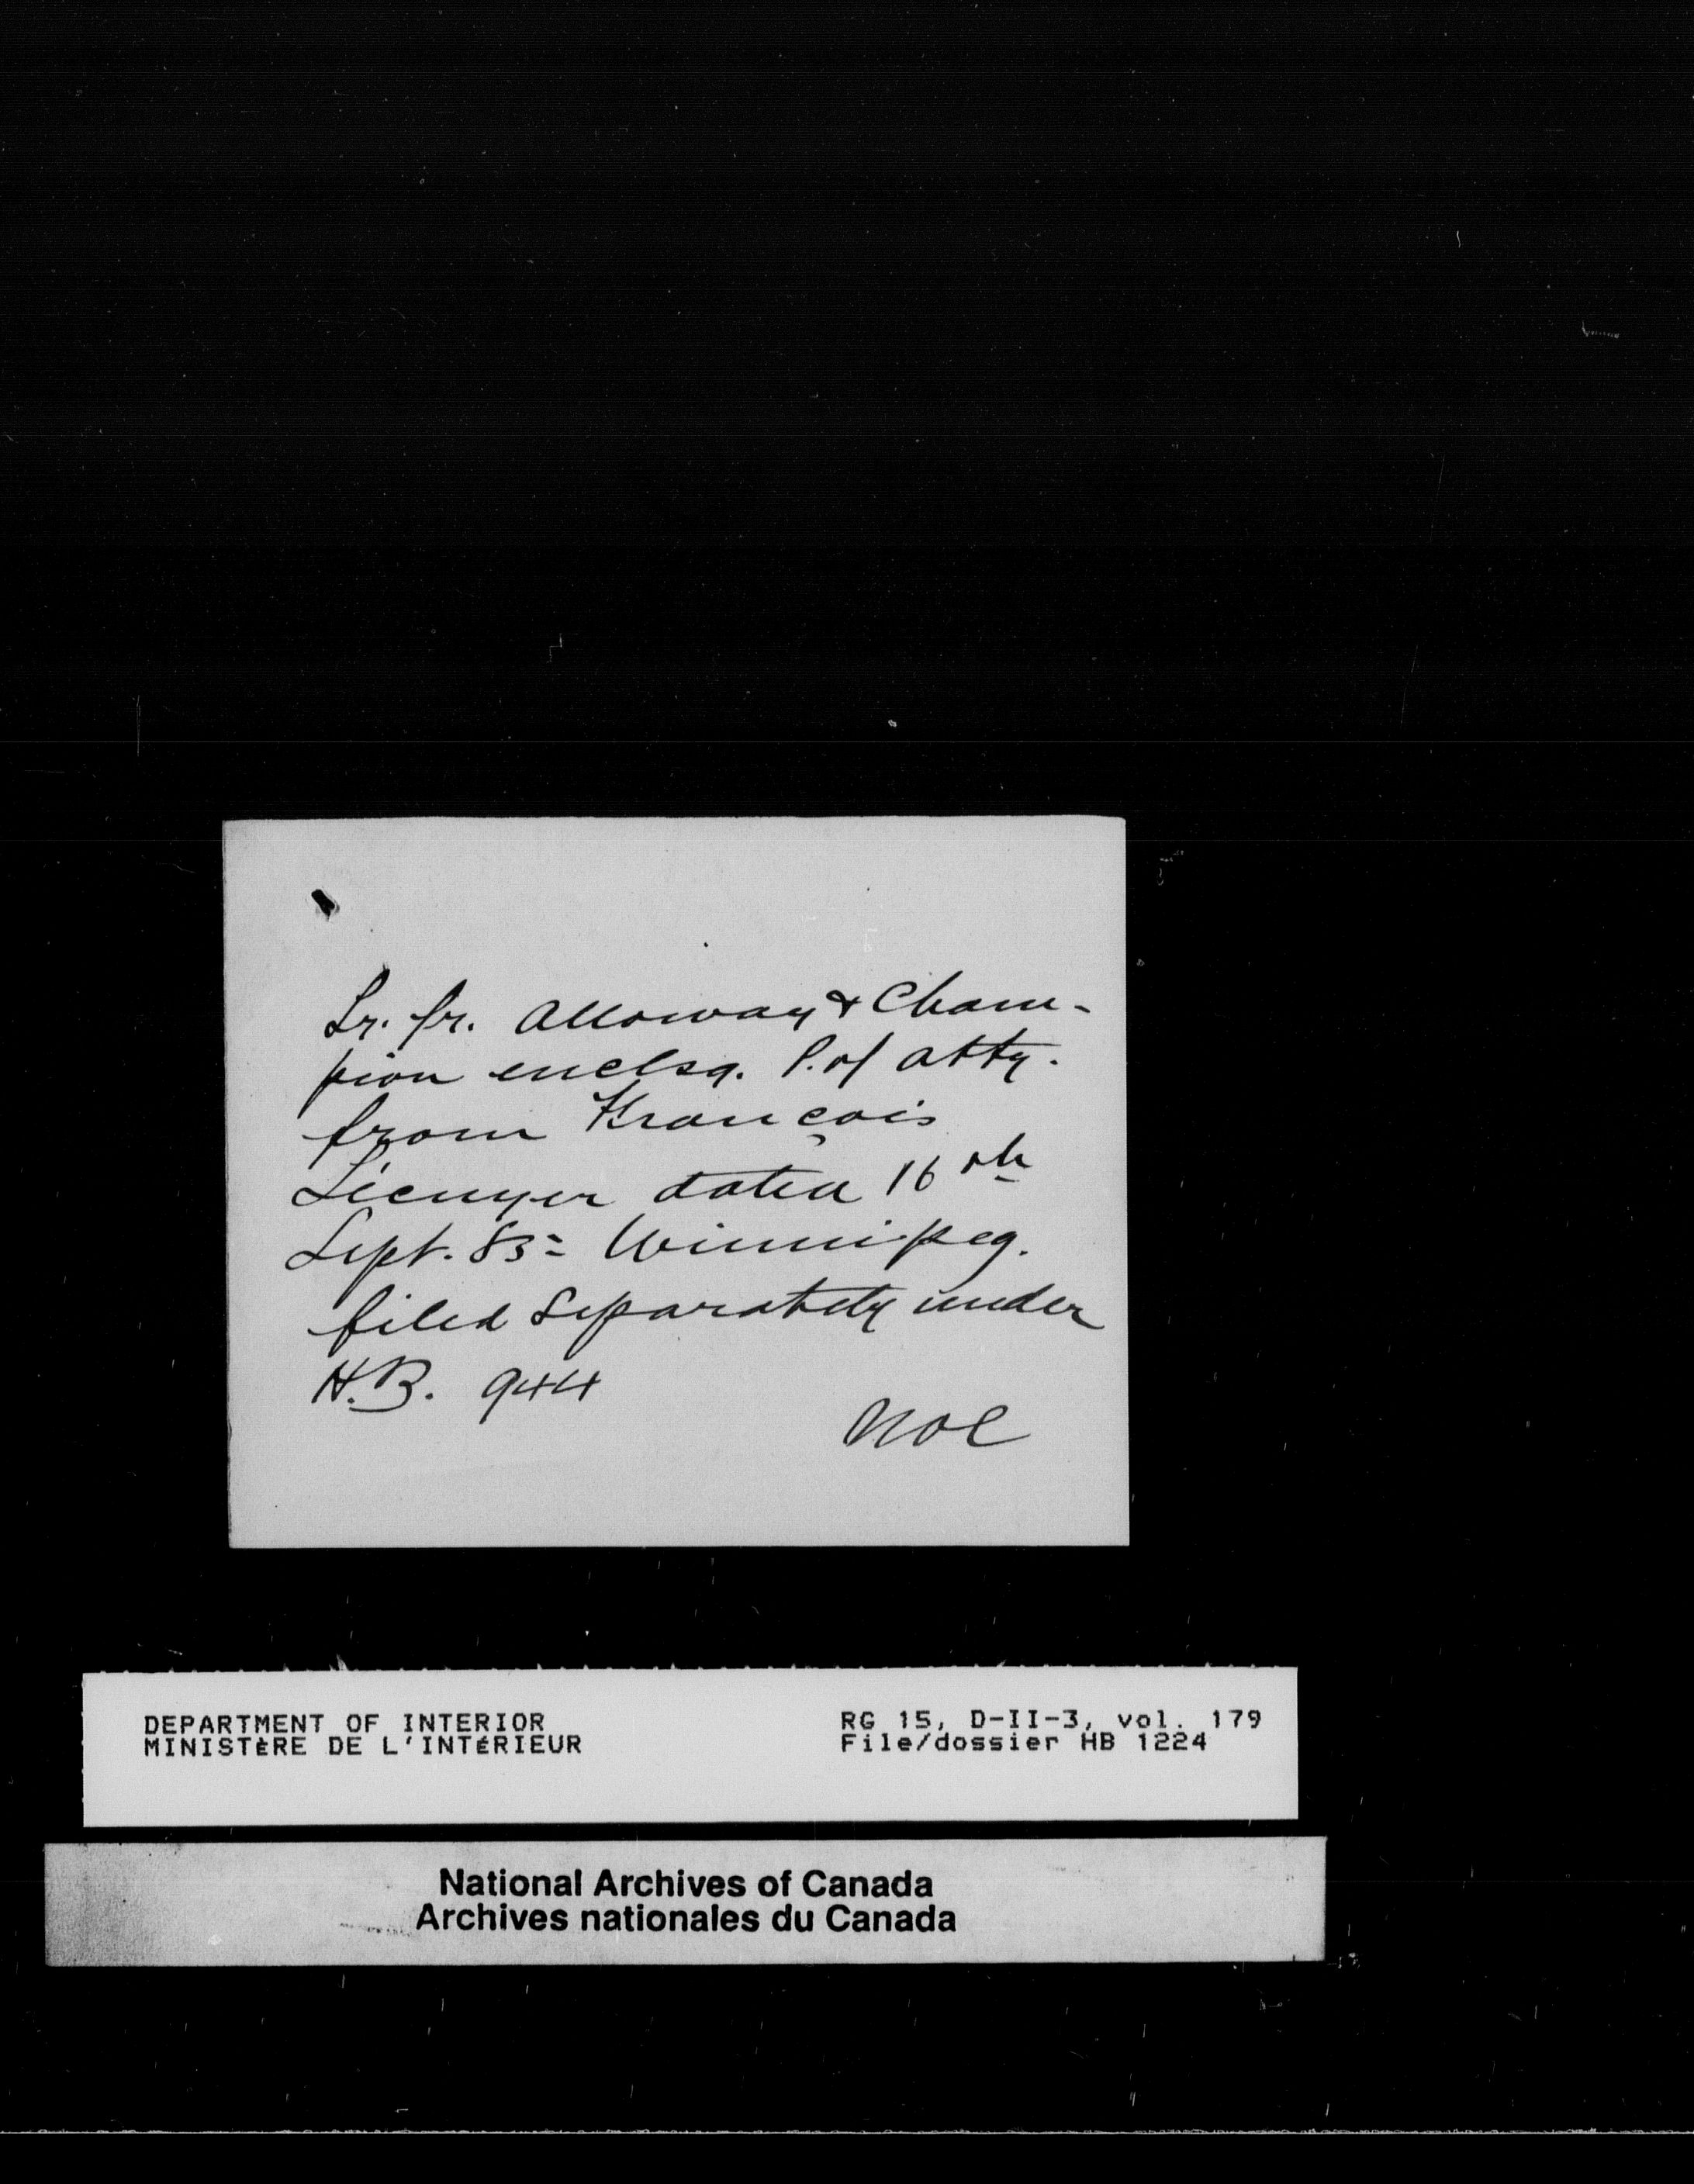 Lr. fr. Alloway & Cham-
pion enclsg. P. of atty.
from François
Lécuyer dated 16th
Sept. 85 = Winnipeg.
filed separately under
H.B. 944
NOC
DEPARTMENT OF INTERIOR
MINISTÈRE DE L'INTÉRIEUR
RG 15, D-II-3, vol. 179
File/dossier HB 1224
National Archives of Canada
Archives nationales du Canada